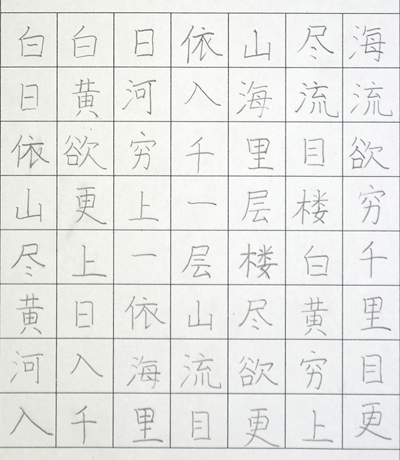 白白日依山尽海
日黄河入海流流
依欲穷千里目欲
山更上一层楼穷
尽上一层楼白千
黄日依山尽黄里
河入海流欲穷目
入千里目更上更